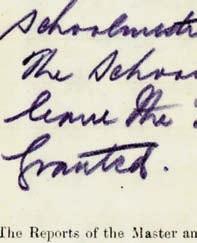 Schoolmistr
The Schoo
leave the
Granted.
The Reports of the Master an